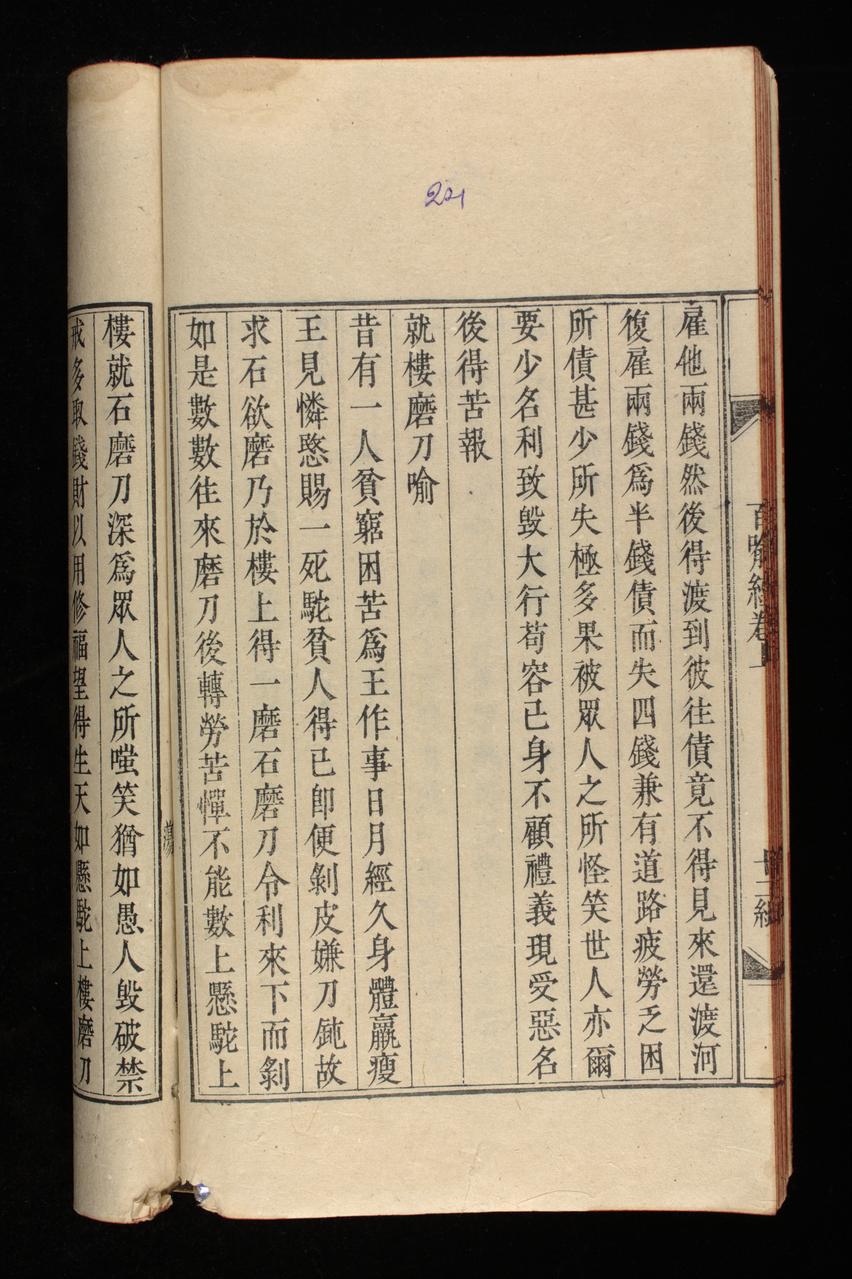 221
百喻經卷上
雇他兩錢然後得渡到彼往債竟不得見來還渡河
復雇兩錢爲半錢債而失四錢兼有道路疲勞乏困
所債甚少所失極多果被眾人之所怪笑世人亦爾
要少名利致毀大行苟容己身不顧禮義現受惡名
後得苦報
就樓磨刀喻
昔有一人貧窮困苦爲王作事日月經久身體羸瘦
王見憐愍賜一死駝貧人得已卽便剝皮嫌刀鈍故
求石欲磨乃於樓上得一磨石磨刀令利來下而剝
如是數數往來磨刀後轉勞苦憚不能數上懸駝上
樓就石磨刀深爲眾人之所嗤笑猶如愚人毀破禁
戒多取錢財以用修福望得生天如懸駝上樓磨刀